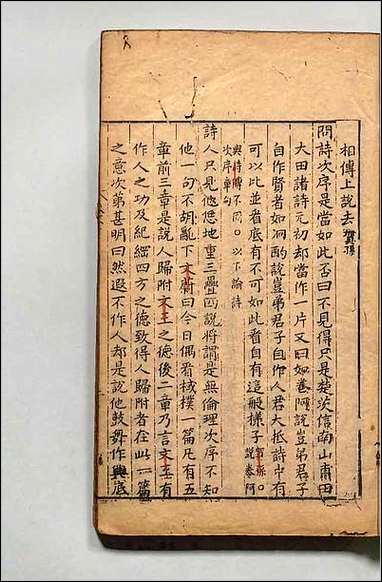 相傳上說去賀孫
問詩次序是當如此否曰不見得只是楚茨信南山甫田
大田諸詩元初却當作一片又曰如卷阿說豈弟君子
自作賢者如泂酌說豈弟君子自作人君大抵詩中有
可以比並看底有不可如此看自有這般樣子賀孫○說卷阿
與詩傳不同○以下論詩次序章句
詩人只見他恁地重三疊四說將謂是無倫理次序不知
他一句不胡亂下文蔚曰今日偶看棫樸一篇凡有五
章前三章是說人歸附文王之德後二章乃言文王有
作人之功及紀綱四方之德致得人歸附者在此一篇
之意次第甚明曰然遐不作人却是說他鼓舞作興底